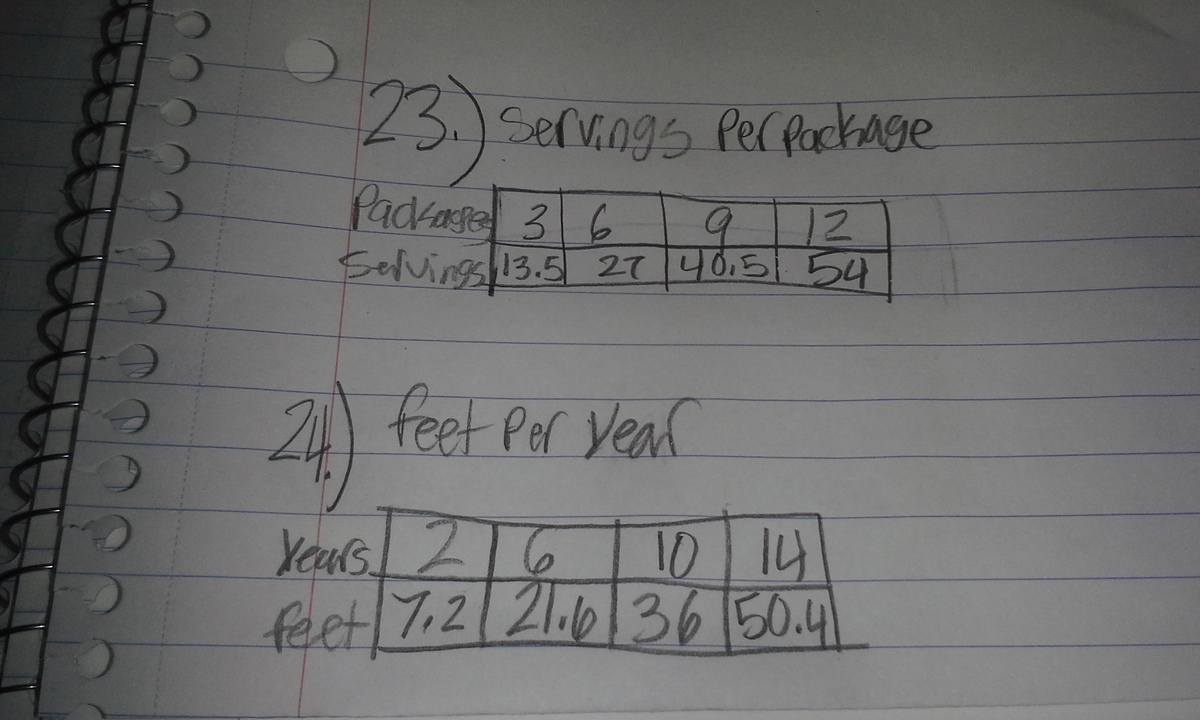 23.) Servings Per Package
Packages 3 6 9 12
Servings 13.5 27 40.5 54
24.) feet Per Year
Years 2 6 10 14
feet 7.2 21.6 36 50.4